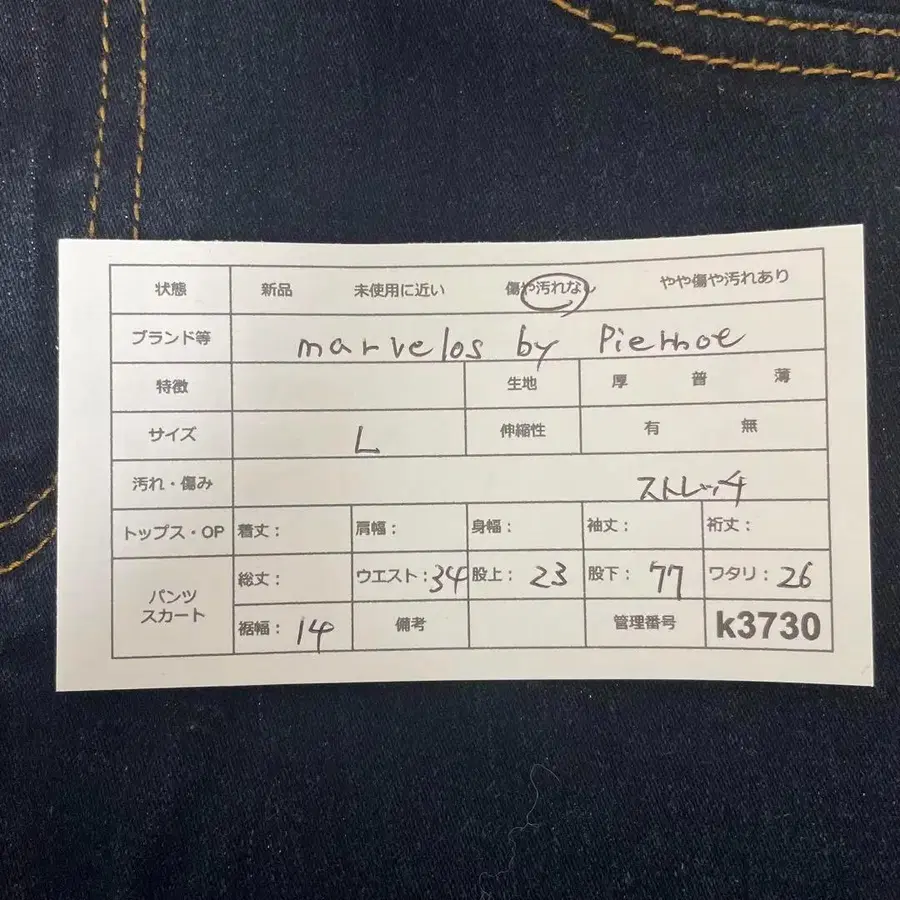 状態 新品 未使用に近い 傷や汚れなし やや傷や汚れあり
ブランド等 marvelos by Pierrhoe
特徴 生地 厚 普 薄
サイズ L 伸縮性 有 無
汚れ・傷み ストレッチ
トップス・OP 着丈: 肩幅: 身幅: 袖丈: 裄丈:
パンツ スカート 総丈: ウエスト:34 股上: 23 股下: 77 ワタリ: 26
裾幅: 14 備考 管理番号 k3730